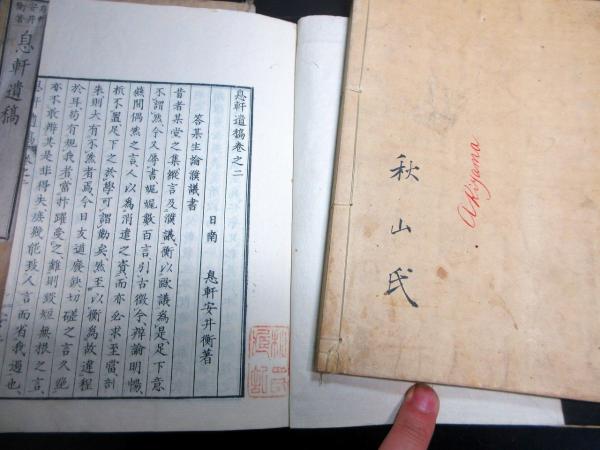 息軒遺稿
息軒遺稿卷之二
答某生論濮議書
日南 息軒安井衡著
昔者某堂之集縱言及濮議衡以歐議為是足下意
不謂然今又辱書娓娓數百言引古徵今辯論明暢
人以為消遣之資而亦必求至當剖
析不置足下之於學可謂勤矣然至以衡為故違程
朱則大有不然者焉今日友道廢缺切磋之言久絶
於耳苟有規我者當拚躍受之雖則毀短無根之言
亦不敢辯其是非得失
人言而省我過也
秋山氏
Akiyama